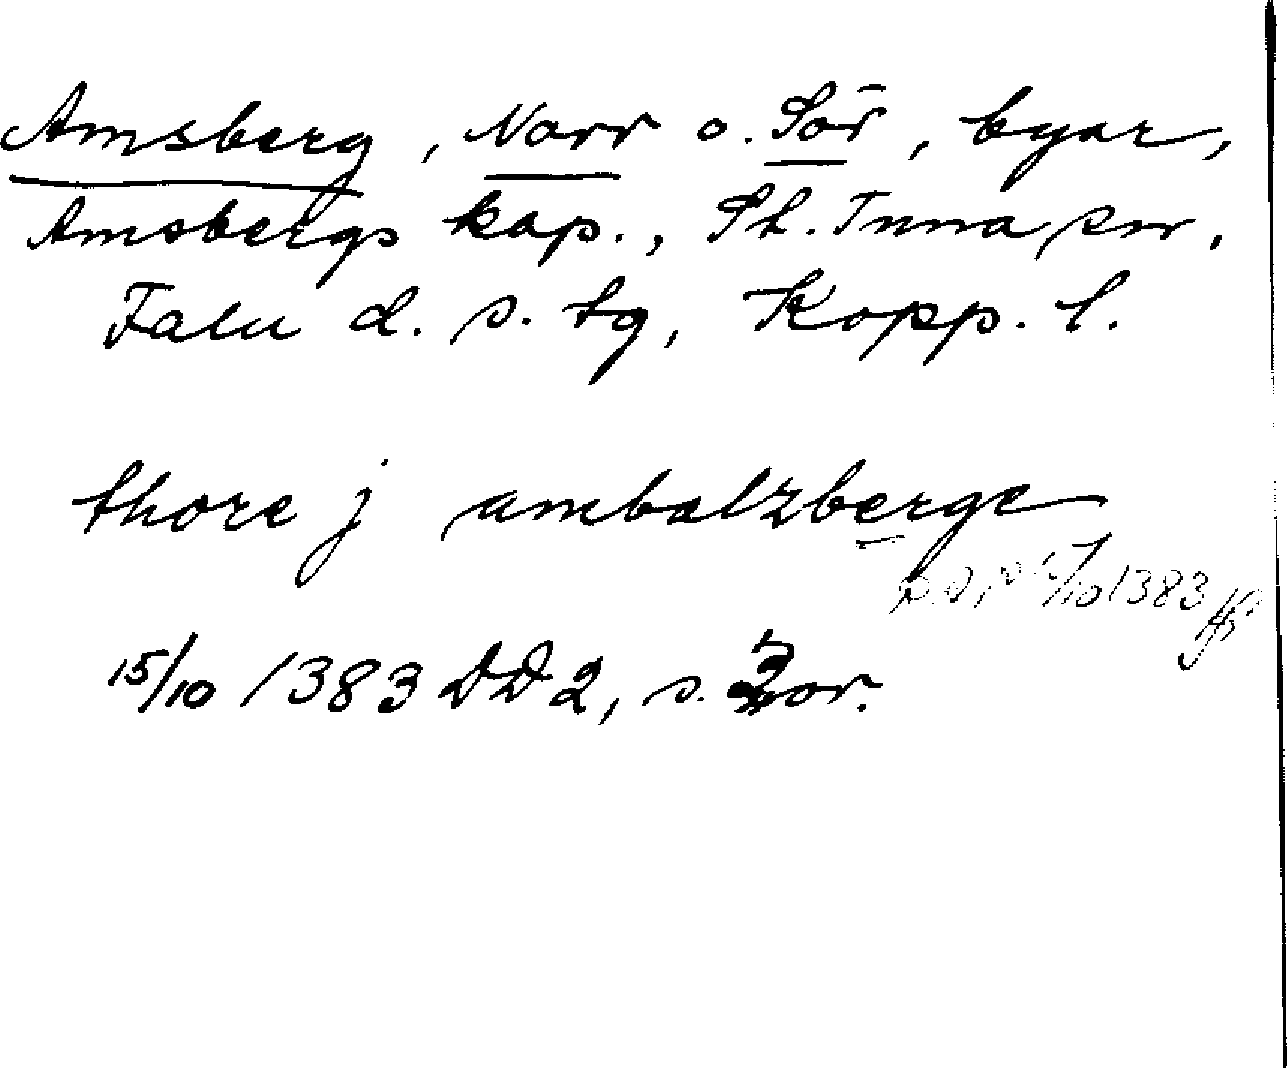 Amsberg, Norr o. Sör, byar,
Amsbergs kap., St. Tuna sn,
Falu d. s. tg, Kopp. l.
thore j ambalzberge
15/10 1383
15/10 1383 DD2, s. or.